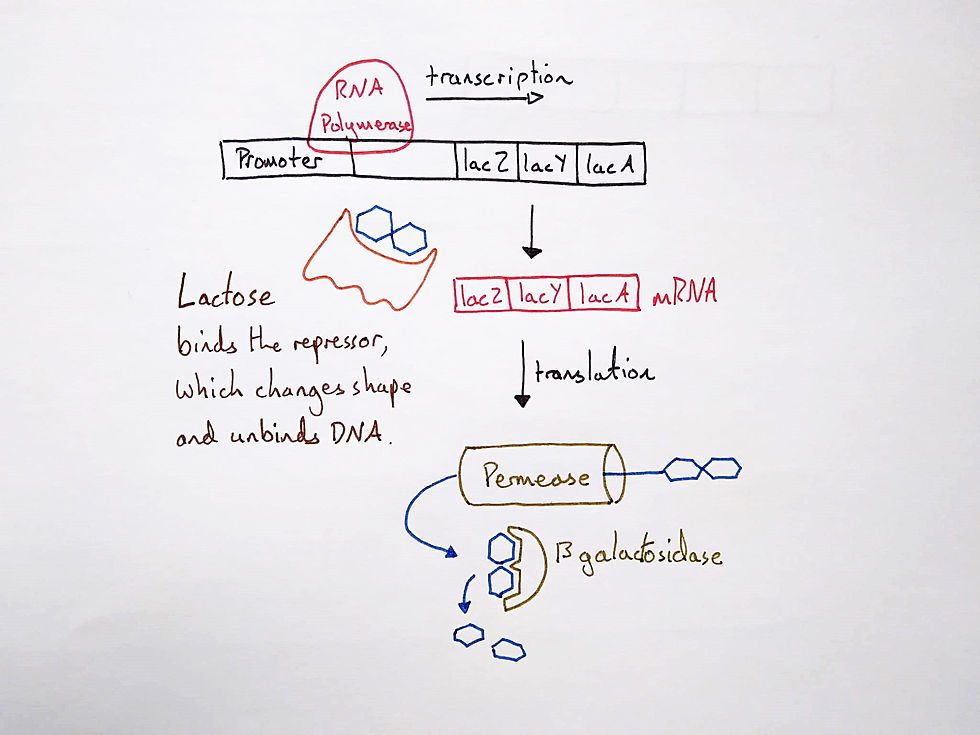 RNA
Polymerase
transcription
Promoter
lacZ
lacY
lacA
Lactose
binds the repressor,
which changes shape
and unbinds DNA.
lacZ
lacY
lacA
mRNA
translation
Permease
β galactosidase